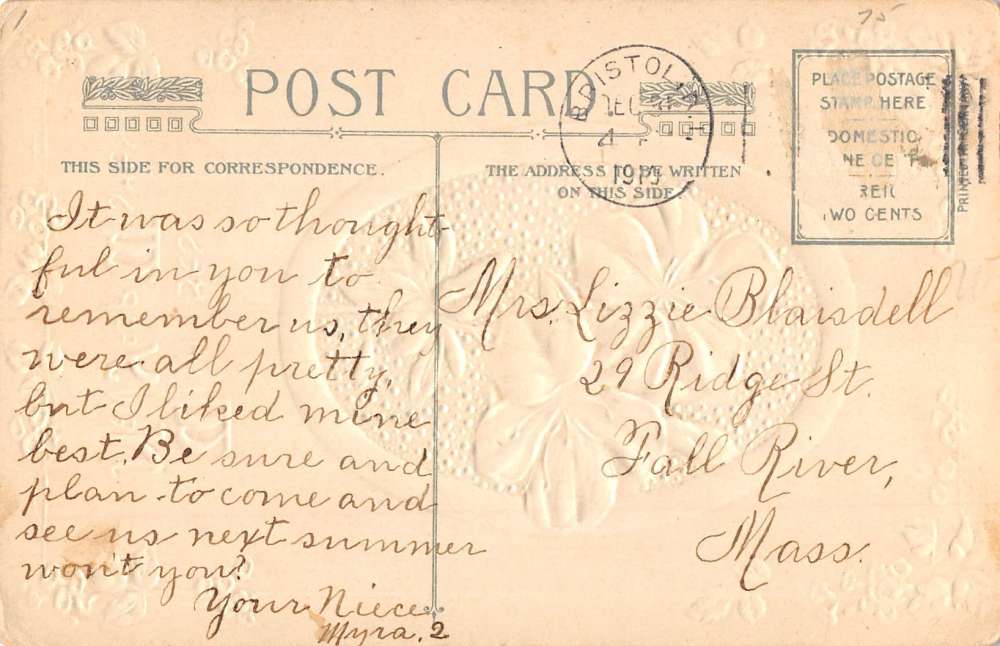 75
POST CARD
BRISTOL
DEC 21
4
1911
PLACE POSTAGE
STAMP HERE
DOMESTIC
ONE CENT
FOREIGN
TWO CENTS
PRINTED
THIS SIDE FOR CORRESPONDENCE.
THE ADDRESS TO BE WRITTEN
ON THIS SIDE
It was so thought-
ful in you to
remember us, they
were all pretty,
but I liked mine
best. Be sure and
plan to come and
see us next summer
won't you?
Your Niece
Myra. 2
Mrs. Lizzie Blaisdell
29 Ridge St.
Fall River,
Mass.